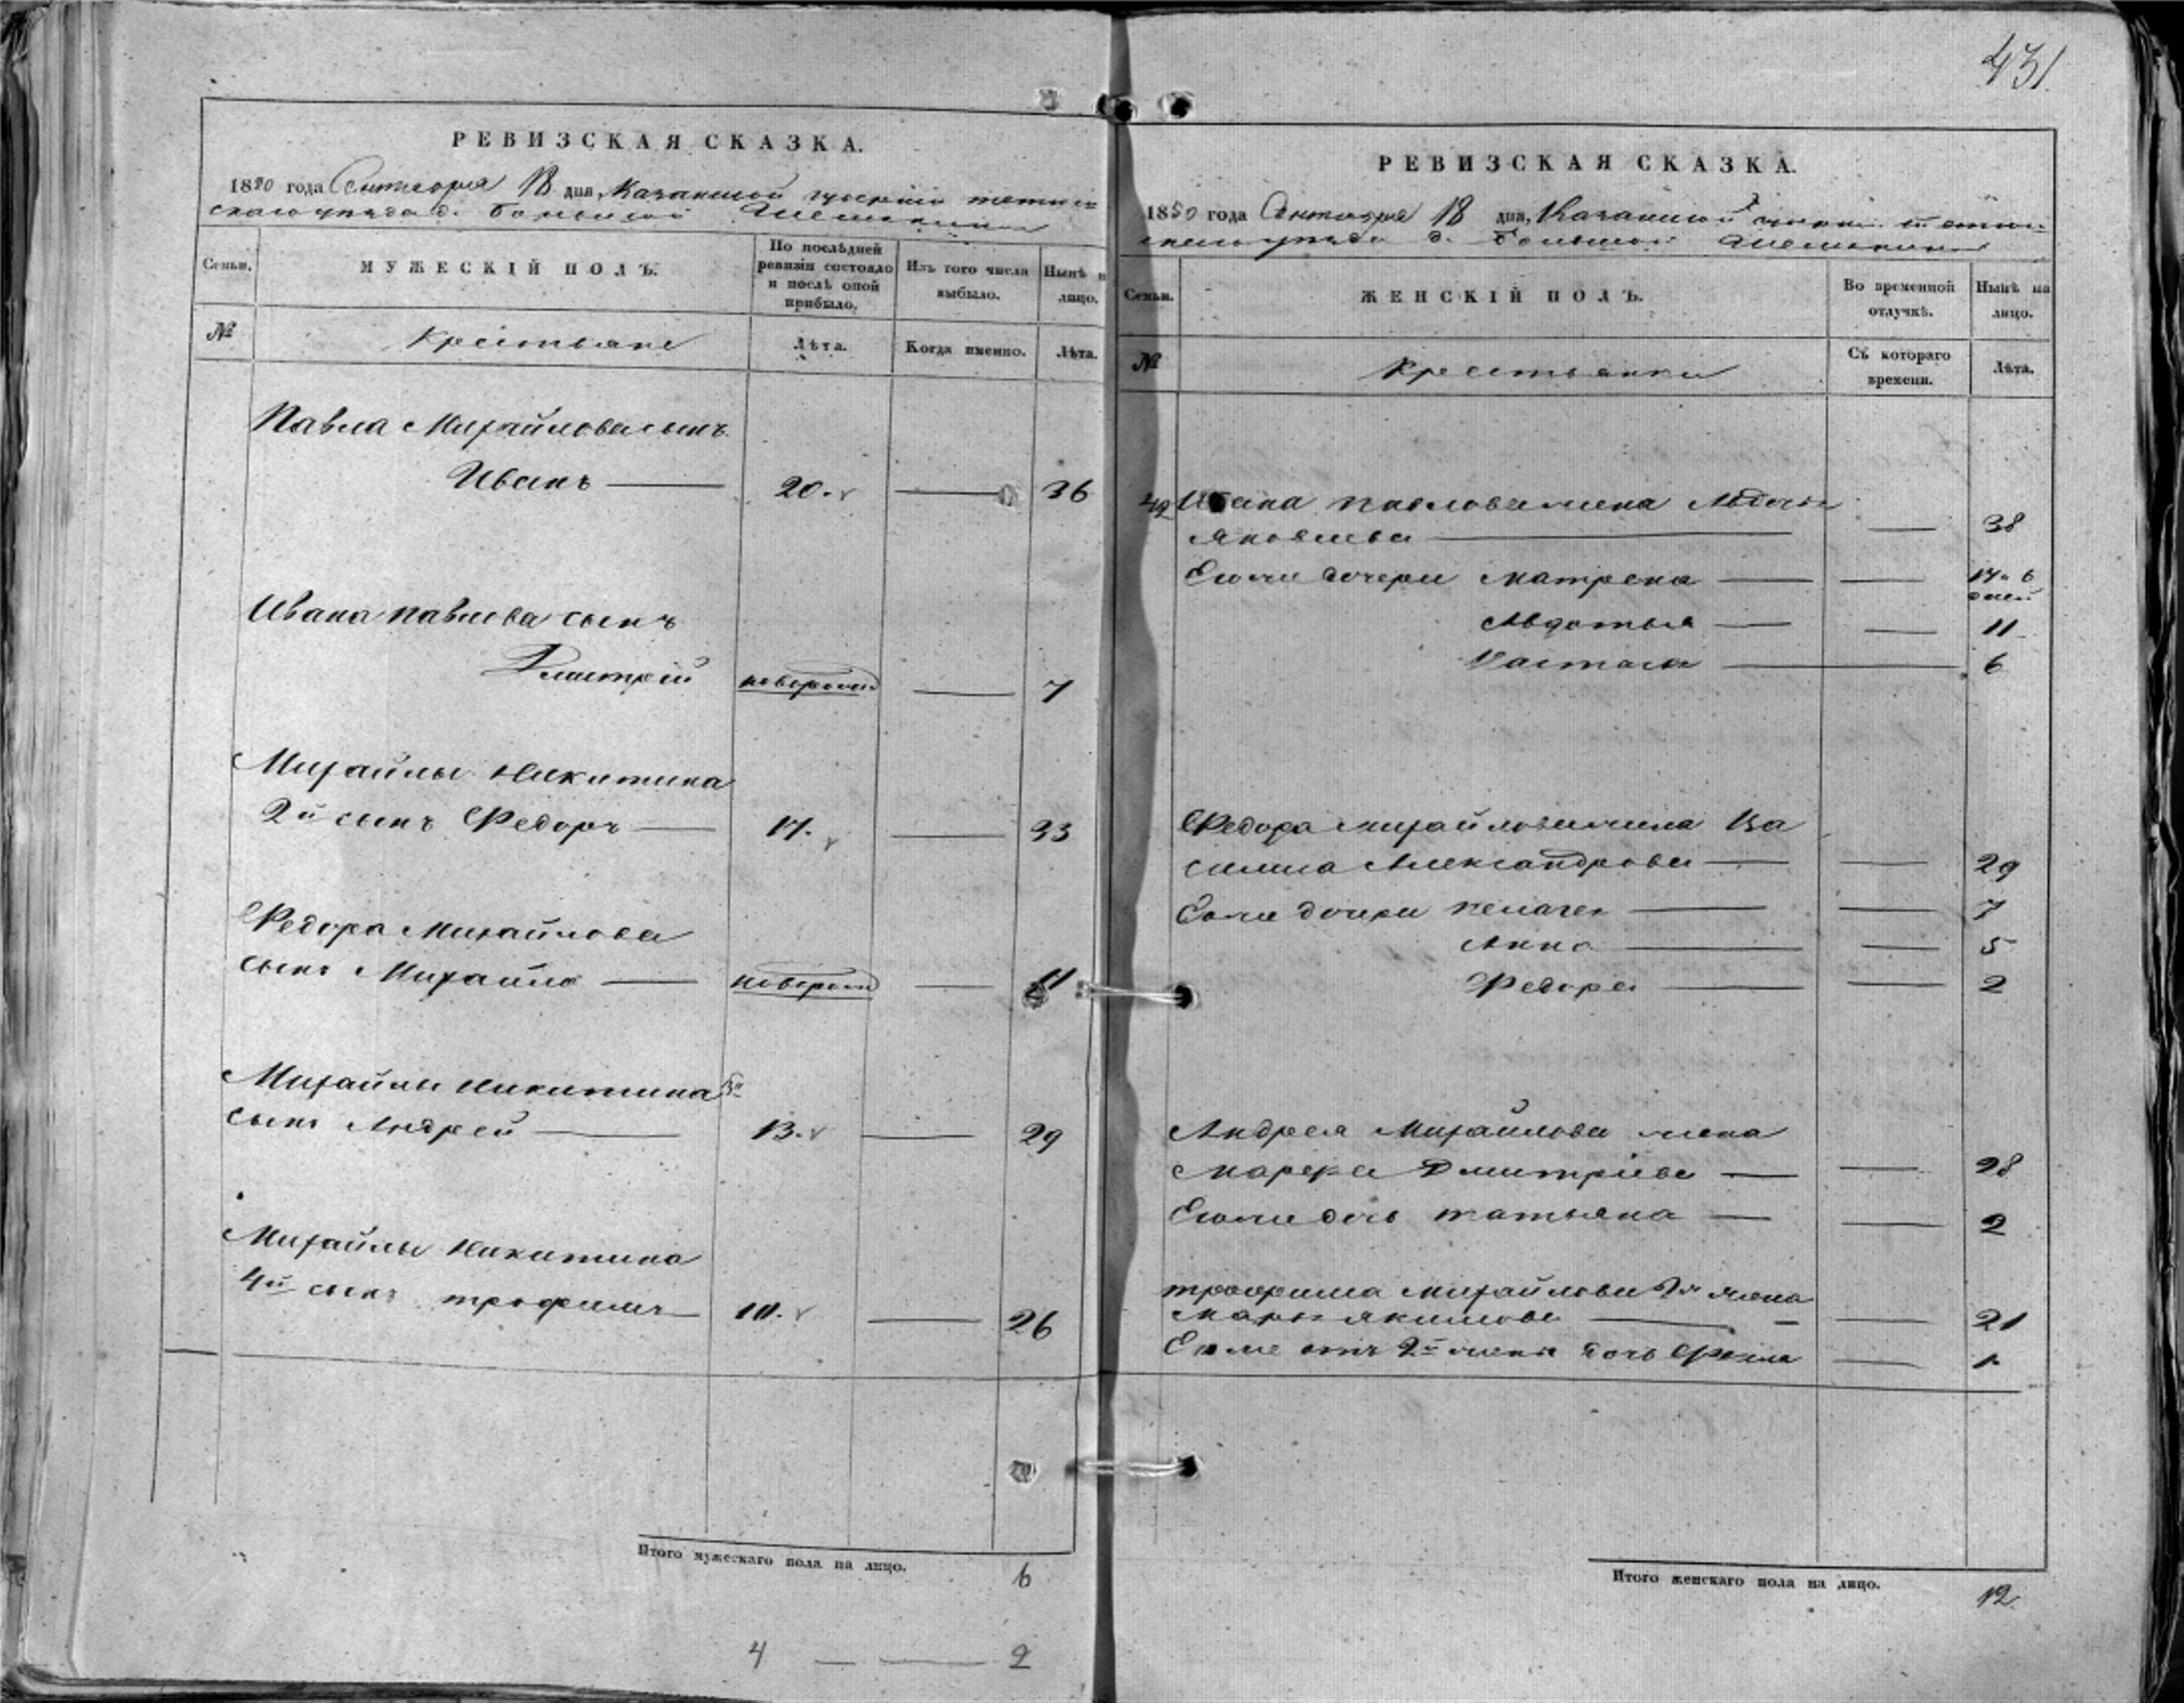 431
РЕВИЗСКАЯ СКАЗКА.
1850 года Сентября 18 дня, Казанской губернiи тетю-
скаго уѣзда д. большой Шемякиной
Семьи.
МУЖЕСКІЙ ПОЛЪ.
По послѣдней ревизіи состояло и послѣ оной прибыло.
Изъ того числа выбыло.
Нынѣ на лицо.
№
Крестьяне
Лѣта.
Когда именно.
Лѣта.
Павла Михайлова сынъ
Иванъ — 20. — 36
Ивана павлова сынъ
Дмитрей новорожд — 7
Михайлы Никитина
2й сынъ Федоръ — 17. — 33
Федора Михайлова
сынъ Михайло — новорожд — 11
Михайлы Никитина 3й
сынъ Андрей — 13. — 29
Михайлы Никитина
4й сынъ трофимъ — 10. — 26
Итого мужескаго пола на лицо. 6
4 — — 2
РЕВИЗСКАЯ СКАЗКА.
1850 года Сентября 18 дня, Казанской губернiи тетю-
скаго уѣзда д. большой Шемякиной
Семьи.
ЖЕНСКІЙ ПОЛЪ.
Во временной отлучкѣ.
Нынѣ на лицо.
№
Крестьянки
Съ котораго времени.
Лѣта.
42 Ивана павлова жена
Яковлева — — 38
Его же дочери Матрена — —
Авдотья — — 11
Настасья — 6
Федора михайлова жена Ва
силиса Александрова — — 29
Его же дочери пелагея — — 7
Анна — — 5
Федора — — 2
Андрея Михайлова жена
Марфа Дмитріева — — 28
Его же дочь татьяна — — 2
трофима Михайлова 2я жена
Марья якимова — — 21
Его же отъ 2й жены дочь — 1
Итого женскаго пола на лицо. 12